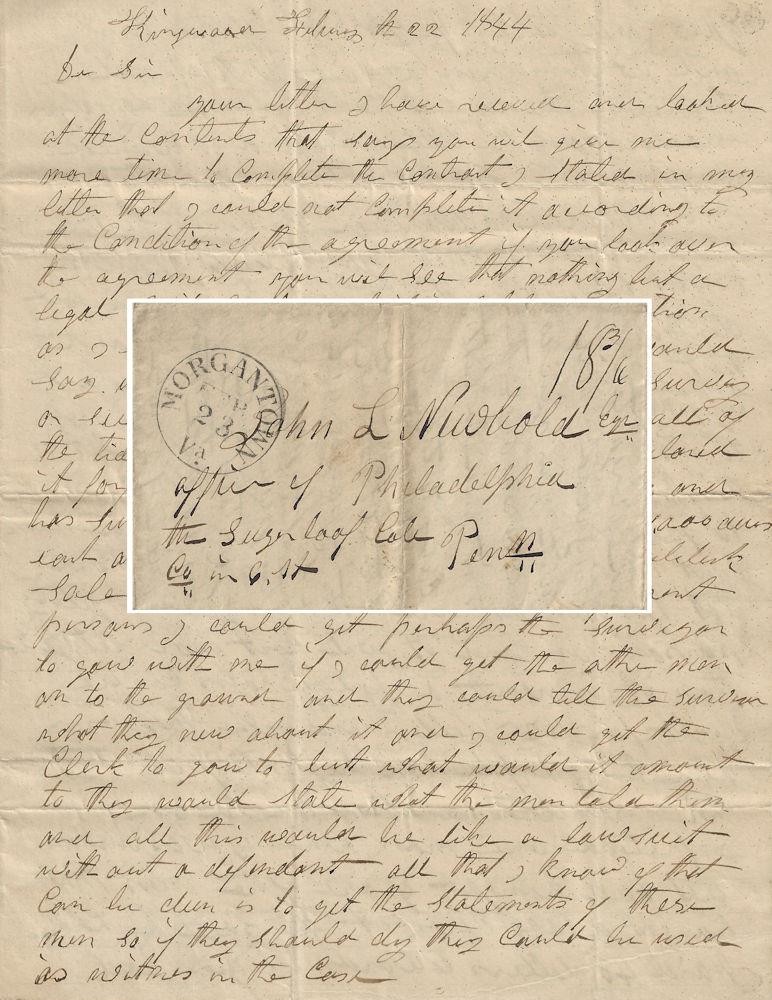 Kingwood Febury the 22 1844
Dr Sir
your letter I have receved and looked
at the Contents that says you will give me
more time to Complete the Contract I stated in my
letter that I could not Complete it according to
the Condition of the agreement if you look over
the agreement you will see that nothing but a
legal
as I
would
Say
Survey
or
all of
the
it for
and
has
000 acres
Sale
MORGANTOWN Va.
FEB 23
18 3/4
John L Newbold Esqr
office of Philadelphia
the Sugerloaf Cole Penn
Co in 6. St
persons I could git perhaps the Surveyor
to gow with me if I could get the othe men
on to the ground and they could tell the Surveyor
what they new about it and I could git the
Clerk to gow to but what would it amount
to they would State what the men told them
and all this would be like a lawsuit
without a defendant all that I know of that
Can be dun is to get the Statements of these
men So if they Should dy they Could be used
as witnes in the Case